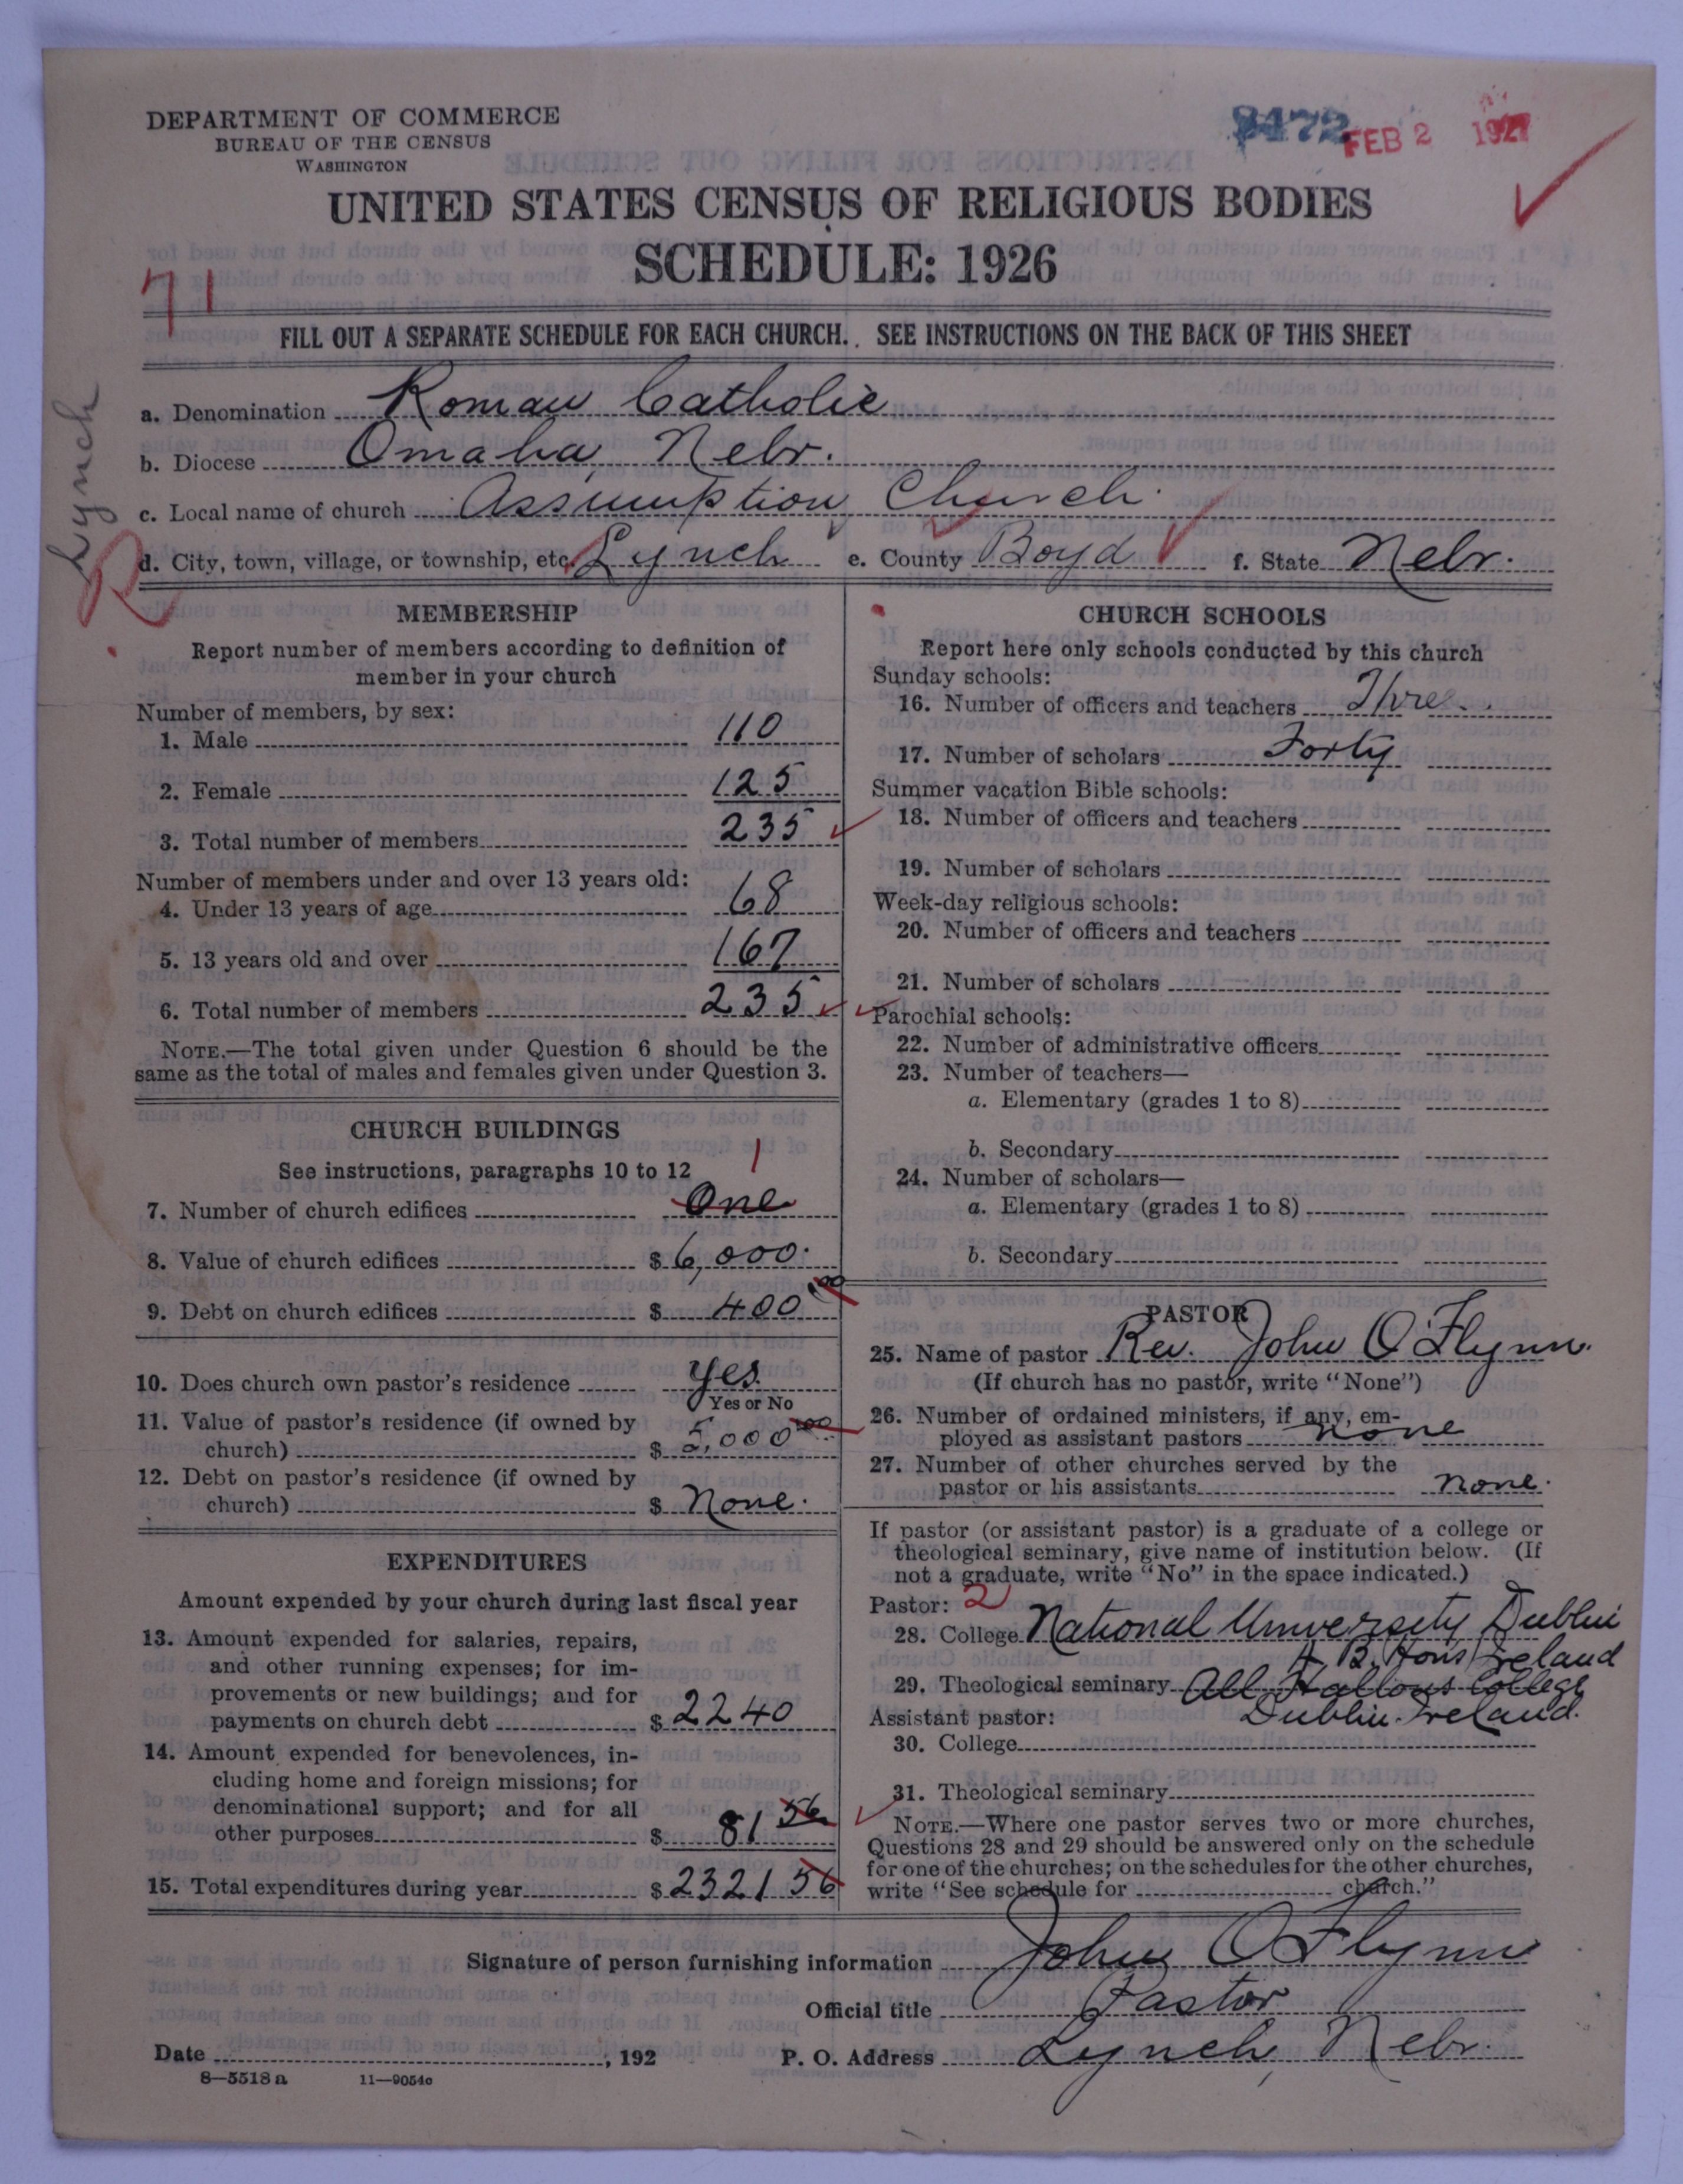 DEPARTMENT OF COMMERCE
BUREAU OF THE CENSUS
WASHINGTON
8472
FEB 2 1927
UNITED STATES CENSUS OF RELIGIOUS BODIES
SCHEDULE: 1926
71
FILL OUT A SEPARATE SCHEDULE FOR EACH CHURCH. SEE INSTRUCTIONS ON THE BACK OF THIS SHEET
Lynch
R
a. Denomination Roman Catholic
b. Diocese Omaha, Nebr.
c. Local name of church Assumption Church
d. City, town, village, or township, etc. Lynch e. County Boyd f. State Nebr.
MEMBERSHIP
Report number of members according to definition of
member in your church
Number of members, by sex:
1. Male 110
2. Female 125
3. Total number of members 235
Number of members under and over 13 years old:
4. Under 13 years of age 68
5. 13 years old and over 167
6. Total number of members 235
NOTE.—The total given under Question 6 should be the
same as the total of males and females given under Question 3.
CHURCH BUILDINGS
See instructions, paragraphs 10 to 12
1
7. Number of church edifices One
8. Value of church edifices $ 6,000.
9. Debt on church edifices $ 400 00
10. Does church own pastor's residence Yes
Yes or No
11. Value of pastor's residence (if owned by
church) $ 5,000 00
12. Debt on pastor's residence (if owned by
church) $ None.
EXPENDITURES
Amount expended by your church during last fiscal year
13. Amount expended for salaries, repairs,
and other running expenses; for im-
provements or new buildings; and for
payments on church debt $ 2240
14. Amount expended for benevolences, in-
cluding home and foreign missions; for
denominational support; and for all
other purposes $ 81 56
15. Total expenditures during year $ 2321 56
CHURCH SCHOOLS
Report here only schools conducted by this church
Sunday schools:
16. Number of officers and teachers Three
17. Number of scholars Forty
Summer vacation Bible schools:
18. Number of officers and teachers
19. Number of scholars
Week-day religious schools:
20. Number of officers and teachers
21. Number of scholars
Parochial schools:
22. Number of administrative officers
23. Number of teachers—
a. Elementary (grades 1 to 8)
b. Secondary
24. Number of scholars—
a. Elementary (grades 1 to 8)
b. Secondary
PASTOR
25. Name of pastor Rev. John O'Flynn.
(If church has no pastor, write "None")
26. Number of ordained ministers, if any, em-
ployed as assistant pastors none
27. Number of other churches served by the
pastor or his assistants none.
If pastor (or assistant pastor) is a graduate of a college or
theological seminary, give name of institution below. (If
not a graduate, write "No" in the space indicated.)
Pastor: 2
28. College National University Dublin
A. B. Hons Ireland
29. Theological seminary All Hallows College
Dublin. Ireland.
Assistant pastor:
30. College
31. Theological seminary
NOTE.—Where one pastor serves two or more churches,
Questions 28 and 29 should be answered only on the schedule
for one of the churches; on the schedules for the other churches,
write "See schedule for church."
Signature of person furnishing information John O'Flynn
Official title Pastor
Date , 192 P. O. Address Lynch, Nebr.
8—5518a 11—9054c